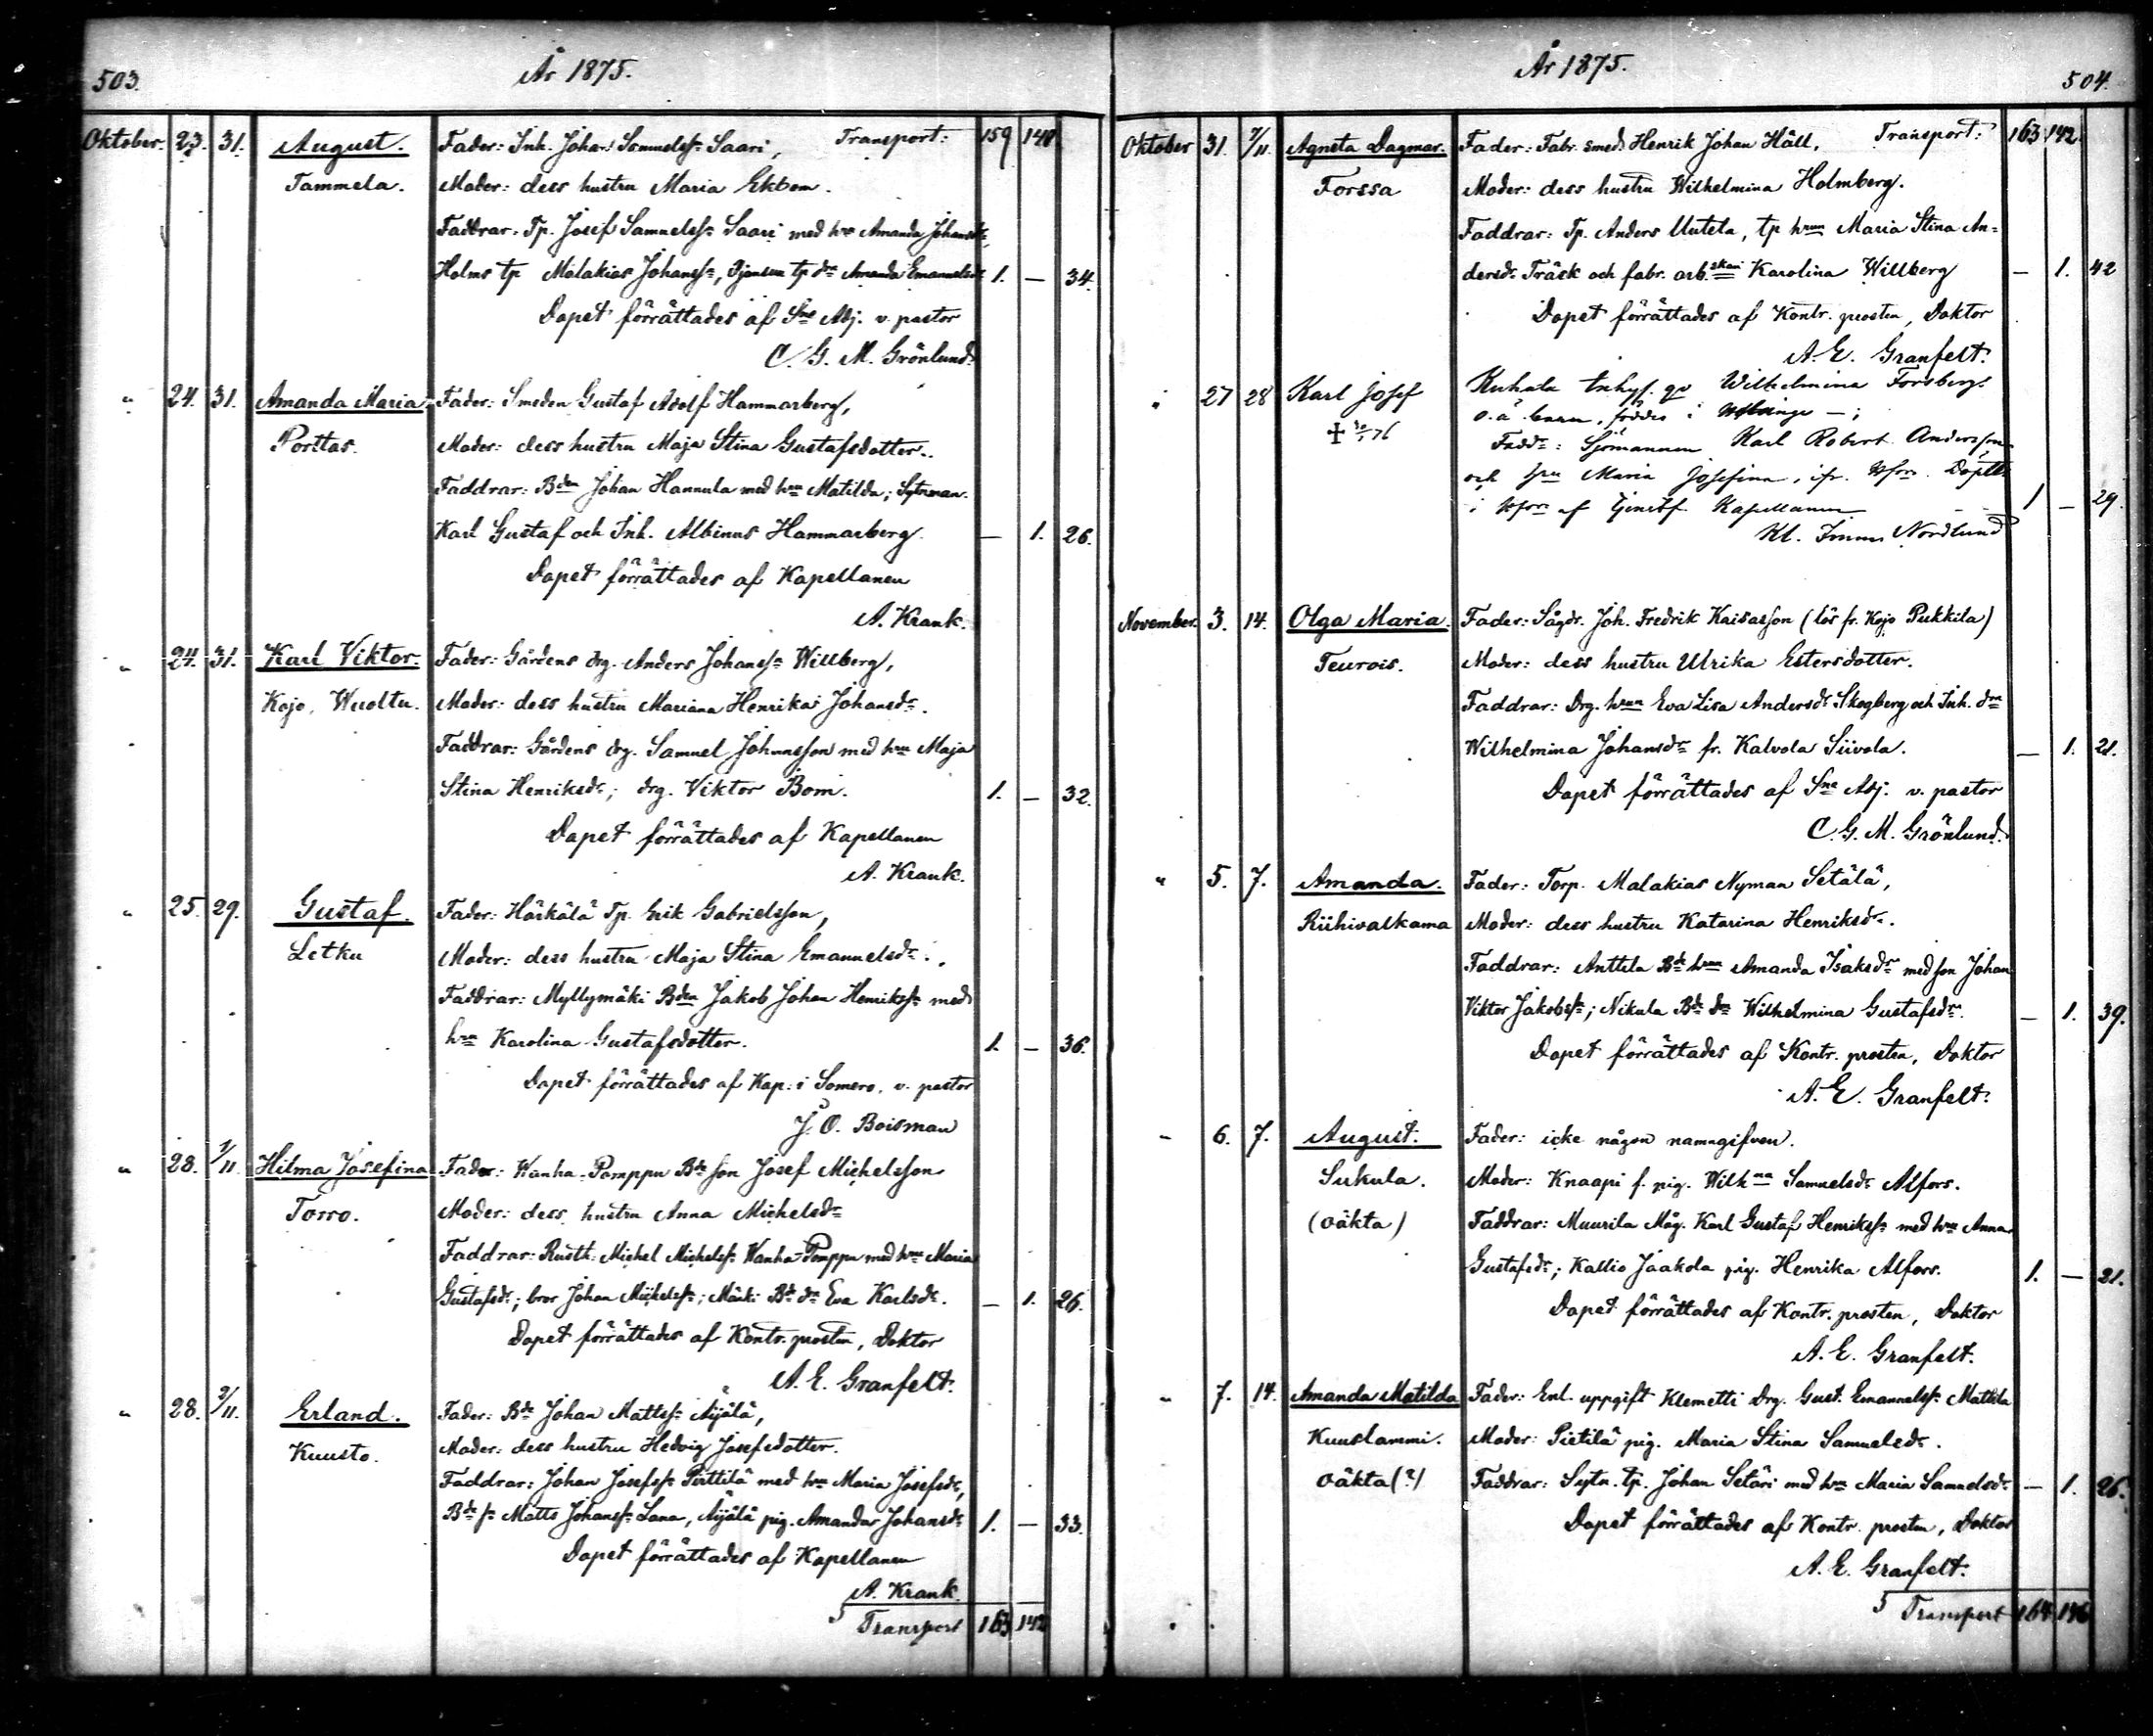 503.
År 1875.
Oktober. 23. 31. August. Fader: Inh. Johan Samuelss: Saari, Transport: 159 140
Tammela. Moder: dess hustru Maria Ekbom.
Faddrar: Tp. Josef Samuelss: Saari med hu Amanda Johansdr,
Holms tp Malakias Johanss:, tp dr Amanda Emanuelsdr 1. — 34.
Dopet förrättades af Sne Adj. v. pastor
C. G. M. Grönlund.
" 24. 31. Amanda Maria Fader: Smeden Gustaf Adolf Hammarberg,
Porttas. Moder: dess hustru Maja Stina Gustafsdotter.
Faddrar: Bden Johan Hannula med hru Matilda; Sytnman
Karl Gustaf och Inh. Albinus Hammarberg. — 1. 26.
Dopet förrättades af Kapellanen
A. Krank.
" 24. 31. Karl Viktor. Fader: Gårdens drg. Anders Johanss: Willberg,
Kojo, Wuoltu. Moder: dess hustru Mariana Henrika Johansdr.
Faddrar: Gårdens drg. Samuel Johansson med hru Maja
Stina Henriksdr; drg. Viktor Bom. 1. — 32.
Dopet förrättades af Kapellanen
A. Krank.
" 25. 29. Gustaf. Fader: Härkälä Tp. Erik Gabrielsson,
Letku Moder: dess hustru Maja Stina Emanuelsdr.
Faddrar: Myllymäki Bden Jakob Johan Henrikss: med
hru Karolina Gustafsdotter. 1. — 36.
Dopet förrättades af Kap: i Somero, v. pastor
J. O. Boisman
" 28. 7/11. Hilma Josefina Fader: Wanha-Pomppu Bde son Josef Michelsson
Torro. Moder: dess hustru Anna Michelsdr
Faddrar: Rusth: Michel Michelss: Wanha-Pomppu med hru Maria
Gustafsdr; bror Johan Michelss:; Bde dr Eva Karlsdr. — 1. 26.
Dopet förrättades af Kontr. prosten, Doktor
A. E. Granfelt.
" 28. 7/11. Erland. Fader: Bde Johan Mattss: Äijälä,
Kuusto. Moder: dess hustru Hedvig Josefsdotter.
Faddrar: Johan Josefss: Pirttilä med hru Maria Josefsdr,
Bde s: Matts Johanss: Lana, Äijälä pig. Amanda Johansdr 1. — 33.
Dopet förrättades af Kapellanen
A. Krank.
Transport 163 142
År 1875.
504.
Oktober 31. 7/11. Agneta Dagmar. Fader: Fabr. smed: Henrik Johan Häll, Transport: 163 142.
Forssa Moder: dess hustru Wilhelmina Holmberg.
Faddrar: Tp. Anders Uutela, tp hrun Maria Stina An-
dersdr Träsk och fabr. arb.skan Karolina Willberg — 1. 42
Dopet förrättades af Kontr. prosten, Doktor
A. E. Granfelt.
" 27 28 Karl Josef Kuhala Inhys. qv Wilhelmina Forsbergs
o.ä. barn, föddes i —;
Fadd:: Sjömannen Karl Robert Andersson
och Maria Josefina, Döptes
i af Kapellanen 1 — 29.
Nordlund
November. 3. 14. Olga Maria. Fader: Sågdr. Joh. Fredrik Kaisasson (lös fr. Kojo Pukkila)
Teurois. Moder: dess hustru Ulrika Estersdotter.
Faddrar: Drg. hrun Eva Lisa Andersdr Skogberg och Inh. dr
Wilhelmina Johansdr fr. Kalvola Siivola. — 1. 21.
Dopet förrättades af Sne Adj. v. pastor
C. G. M. Grönlund.
" 5. 7. Amanda. Fader: Torp. Malakias Nyman Setälä,
Riihivalkama Moder: dess hustru Katarina Henriksdr.
Faddrar: Anttila Bde hrun Amanda Isaksdr med son Johan
Viktor Jakobss:; Nikula Bde dr Wilhelmina Gustafsdr. — 1. 39.
Dopet förrättades af Kontr. prosten, Doktor
A. E. Granfelt.
" 6. 7. August. Fader: icke någon namngifven.
Sukula. Moder: Knaapi f. pig. Wilhna Samuelsdr Alfors.
(oäkta) Faddrar: Muurila Måg. Karl Gustaf Henrikss: med hru Anna
Gustafsdr; Kallio Jaakola pig. Henrika Alfors. 1. — 21.
Dopet förrättades af Kontr. prosten, Doktor
A. E. Granfelt.
" 7. 14. Amanda Matilda Fader: Enl. uppgift Klemetti Drg. Gust. Emanuelss: Mattila
Kuuslammi. Moder: Pietilä pig. Maria Stina Samuelsdr.
oäkta(?) Faddrar: Sytn. tp. Johan Setäri med hru Maria Samuelsdr — 1. 26.
Dopet förrättades af Kontr. prosten, Doktor
A. E. Granfelt.
Transport 164 146